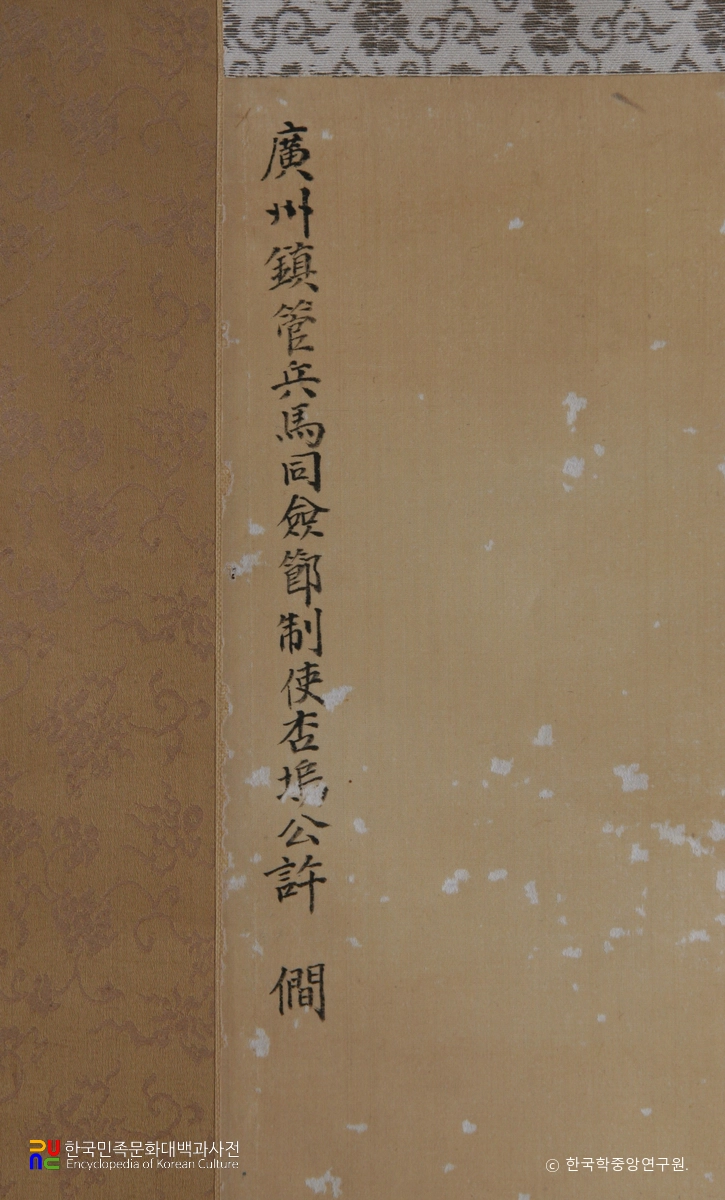 廣州鎮管兵馬同僉節制使杏塢公許 僩
한국민족문화대백과사전
Encyclopedia of Korean Culture
ⓒ 한국학중앙연구원.